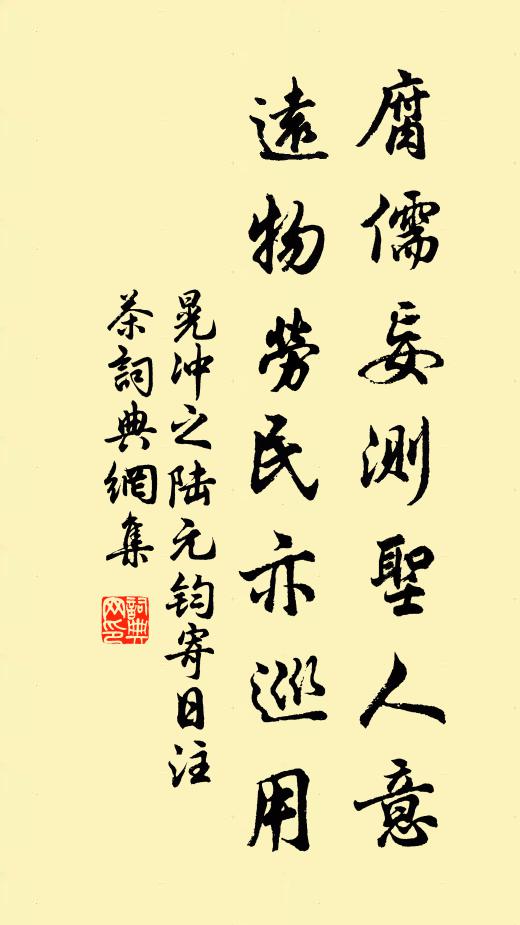 腐儒妄測聖人意
遠物勞民亦巡用
晁冲之陸元鈞寄日注
茶詞典網集
詞典网印